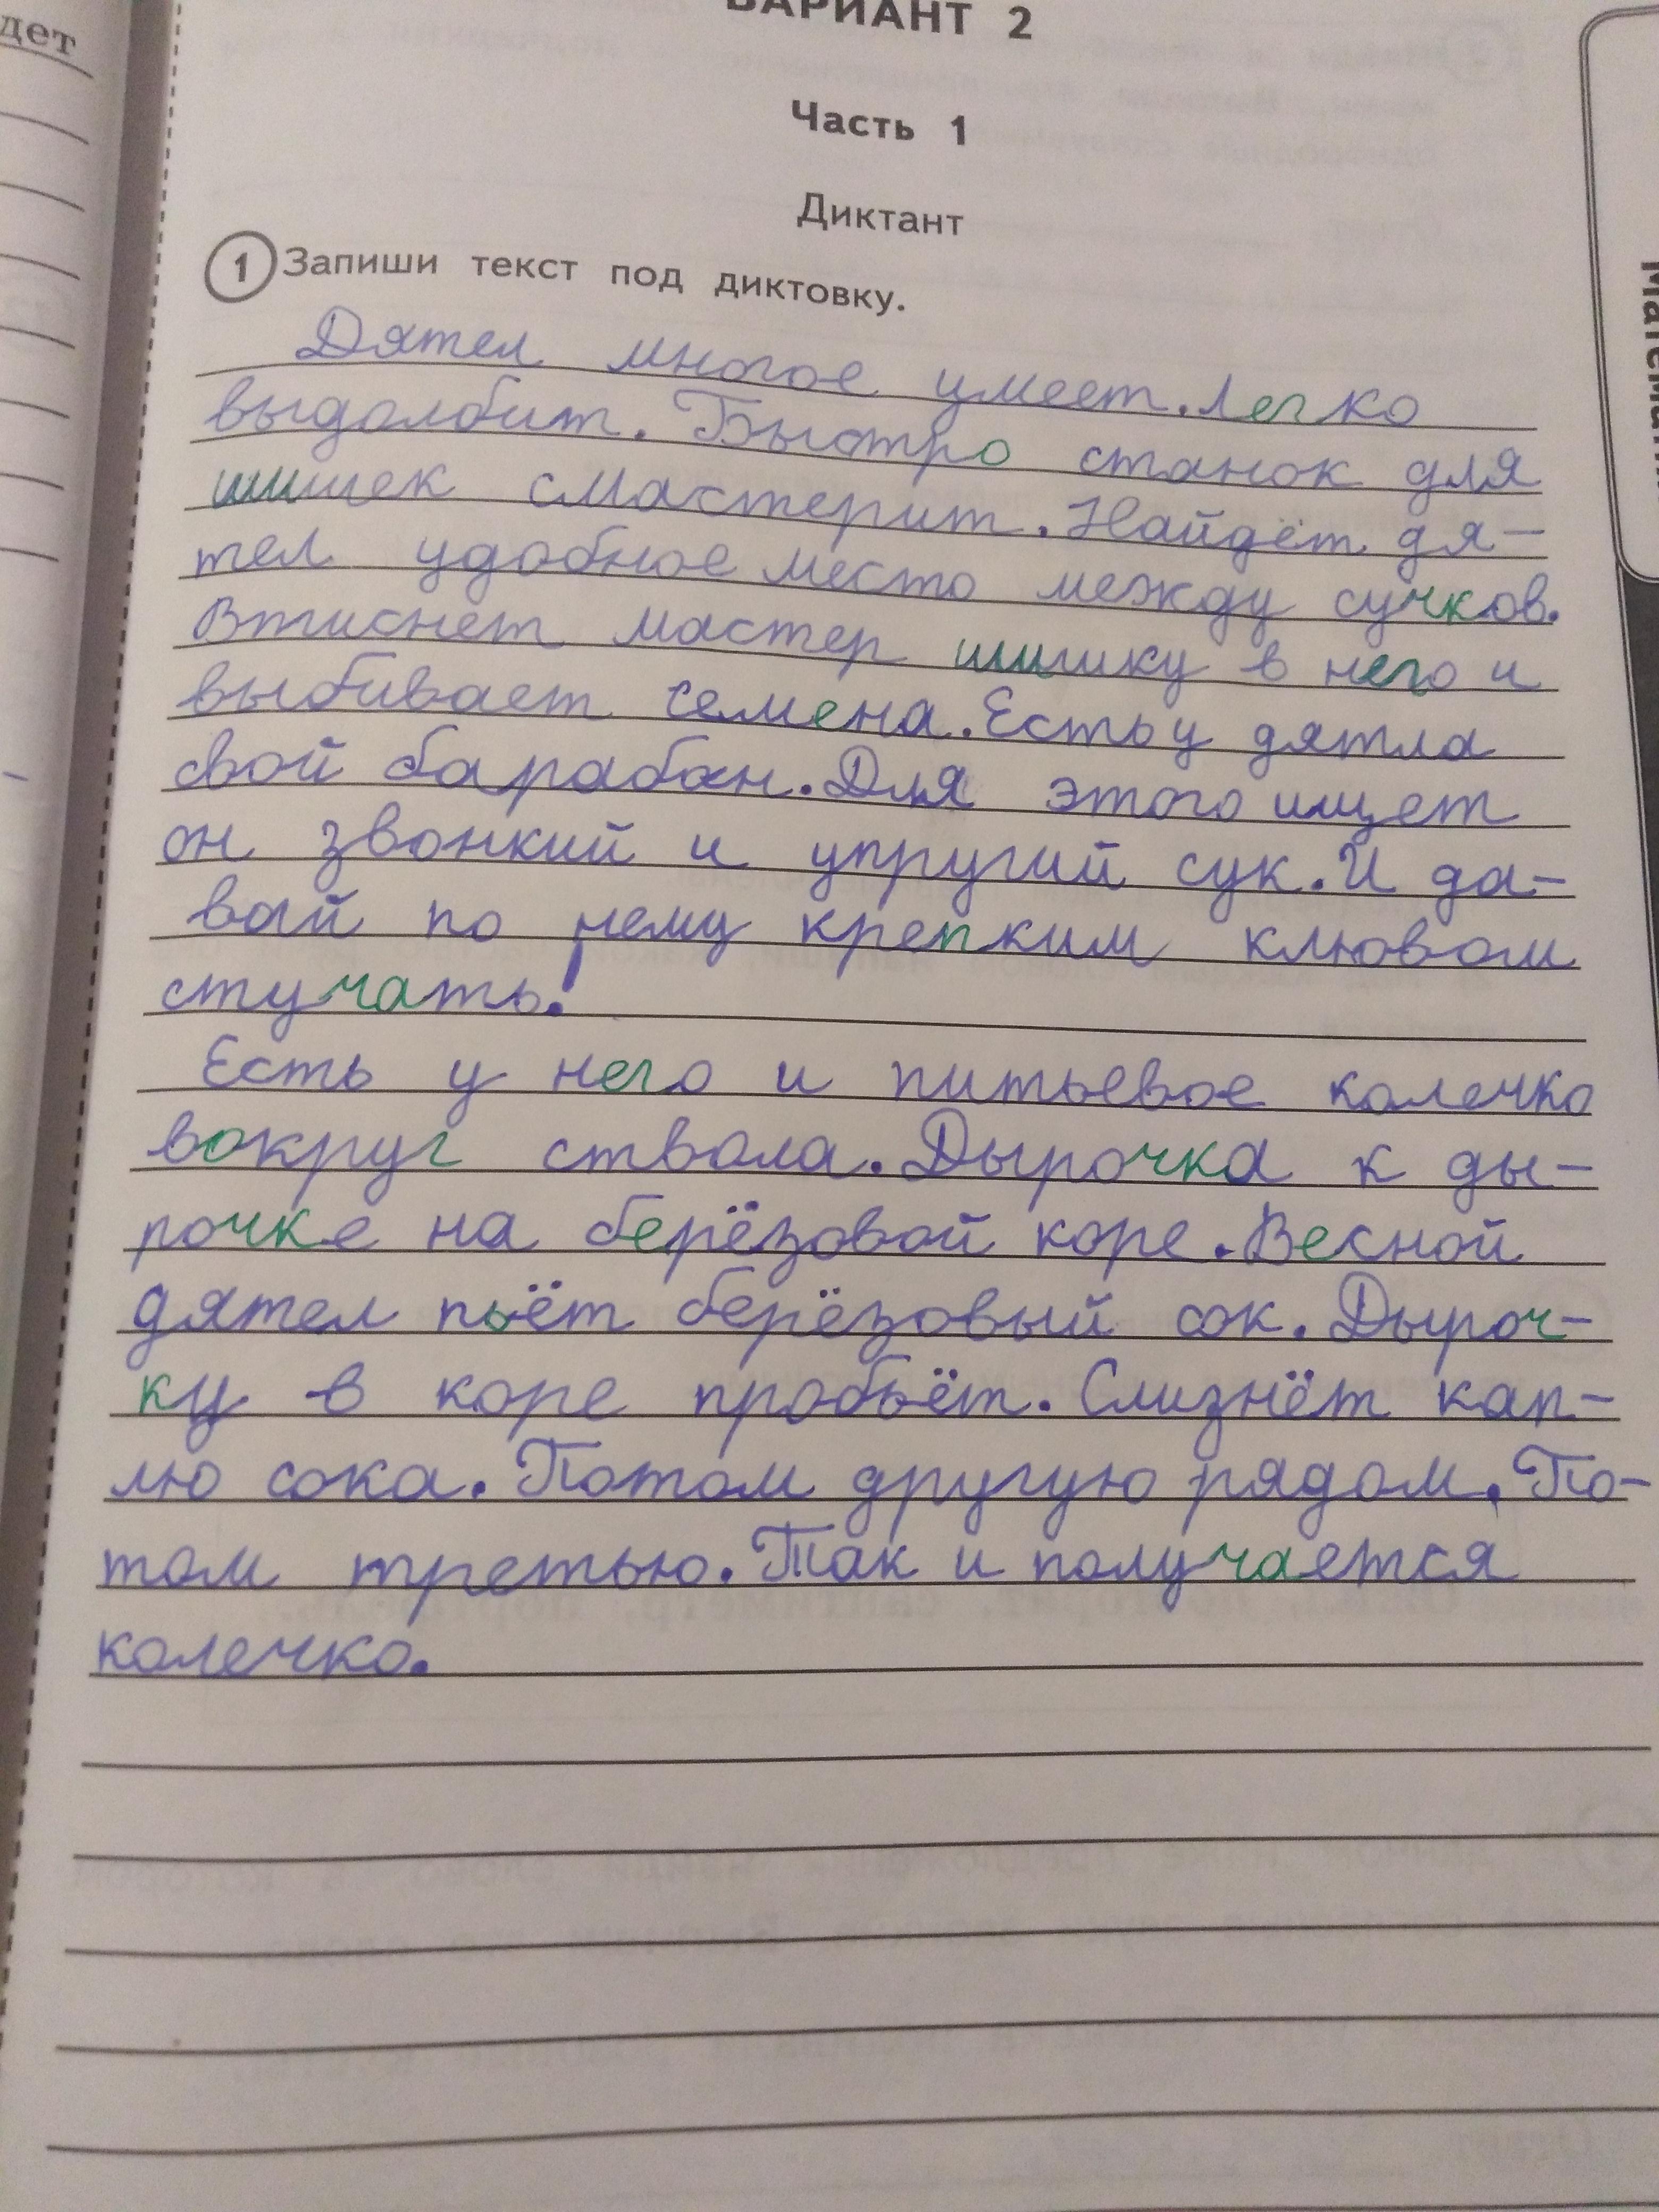 дет
ВАРИАНТ 2
Часть 1
Диктант
1 Запиши текст под диктовку.
Дятел многое умеет. Легко
выдолбит. Быстро станок для
шишек смастерит. Найдёт дя-
тел удобное место между сучков.
Втиснет мастер шишку в него и
выбивает семена. Есть у дятла
свой барабан. Для этого ищет
он звонкий и упругий сук. И да-
вай по нему крепким клювом
стучать!
Есть у него и питьевое колечко
вокруг ствола. Дырочка к ды-
рочке на берёзовой коре. Весной
дятел пьёт берёзовый сок. Дыроч-
ку в коре пробьёт. Слизнёт кап-
лю сока. Потом другую рядом. По-
том третью. Так и получается
колечко.